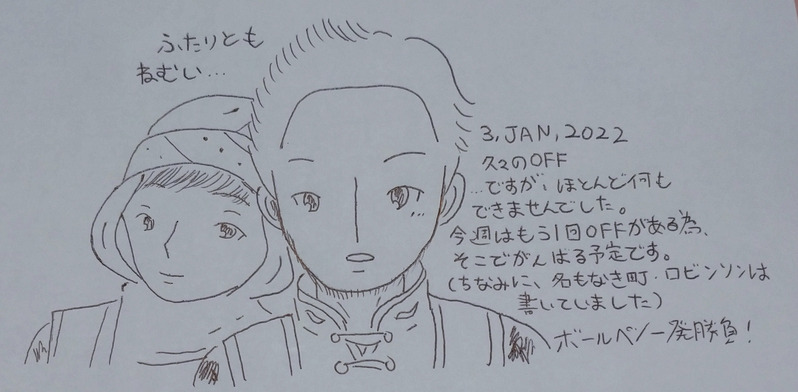 ふたりとも
ねむい…
3, JAN, 2022
久々のOFF
…ですが、ほとんど何も
できませんでした。
今週はもう1回OFFがある為、
そこでがんばる予定です。
(ちなみに、名もなき町・ロビンソンは
書いていました)
ボールペン一発勝負!